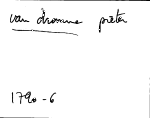 van dromme pieter
1790-6